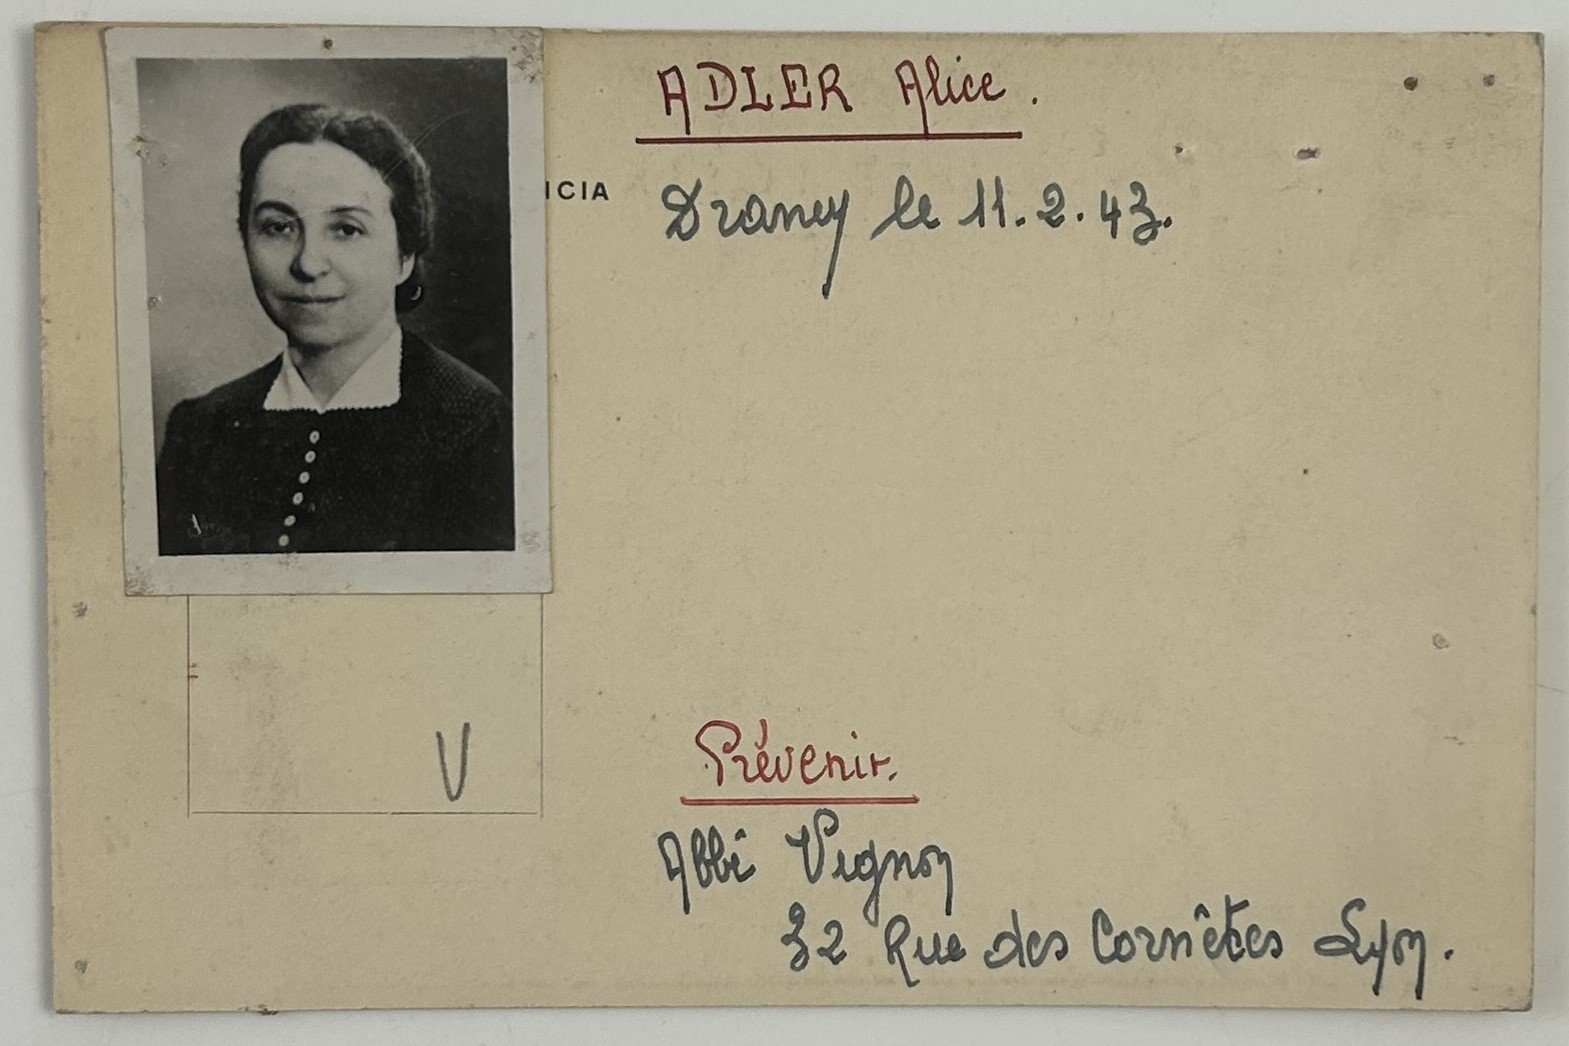 ADLER Alice.
ICIA
Drancy le 11.2.43.
V
Prévenir.
Abbé Vignon
32 Rue des Cornêtes Lyon.